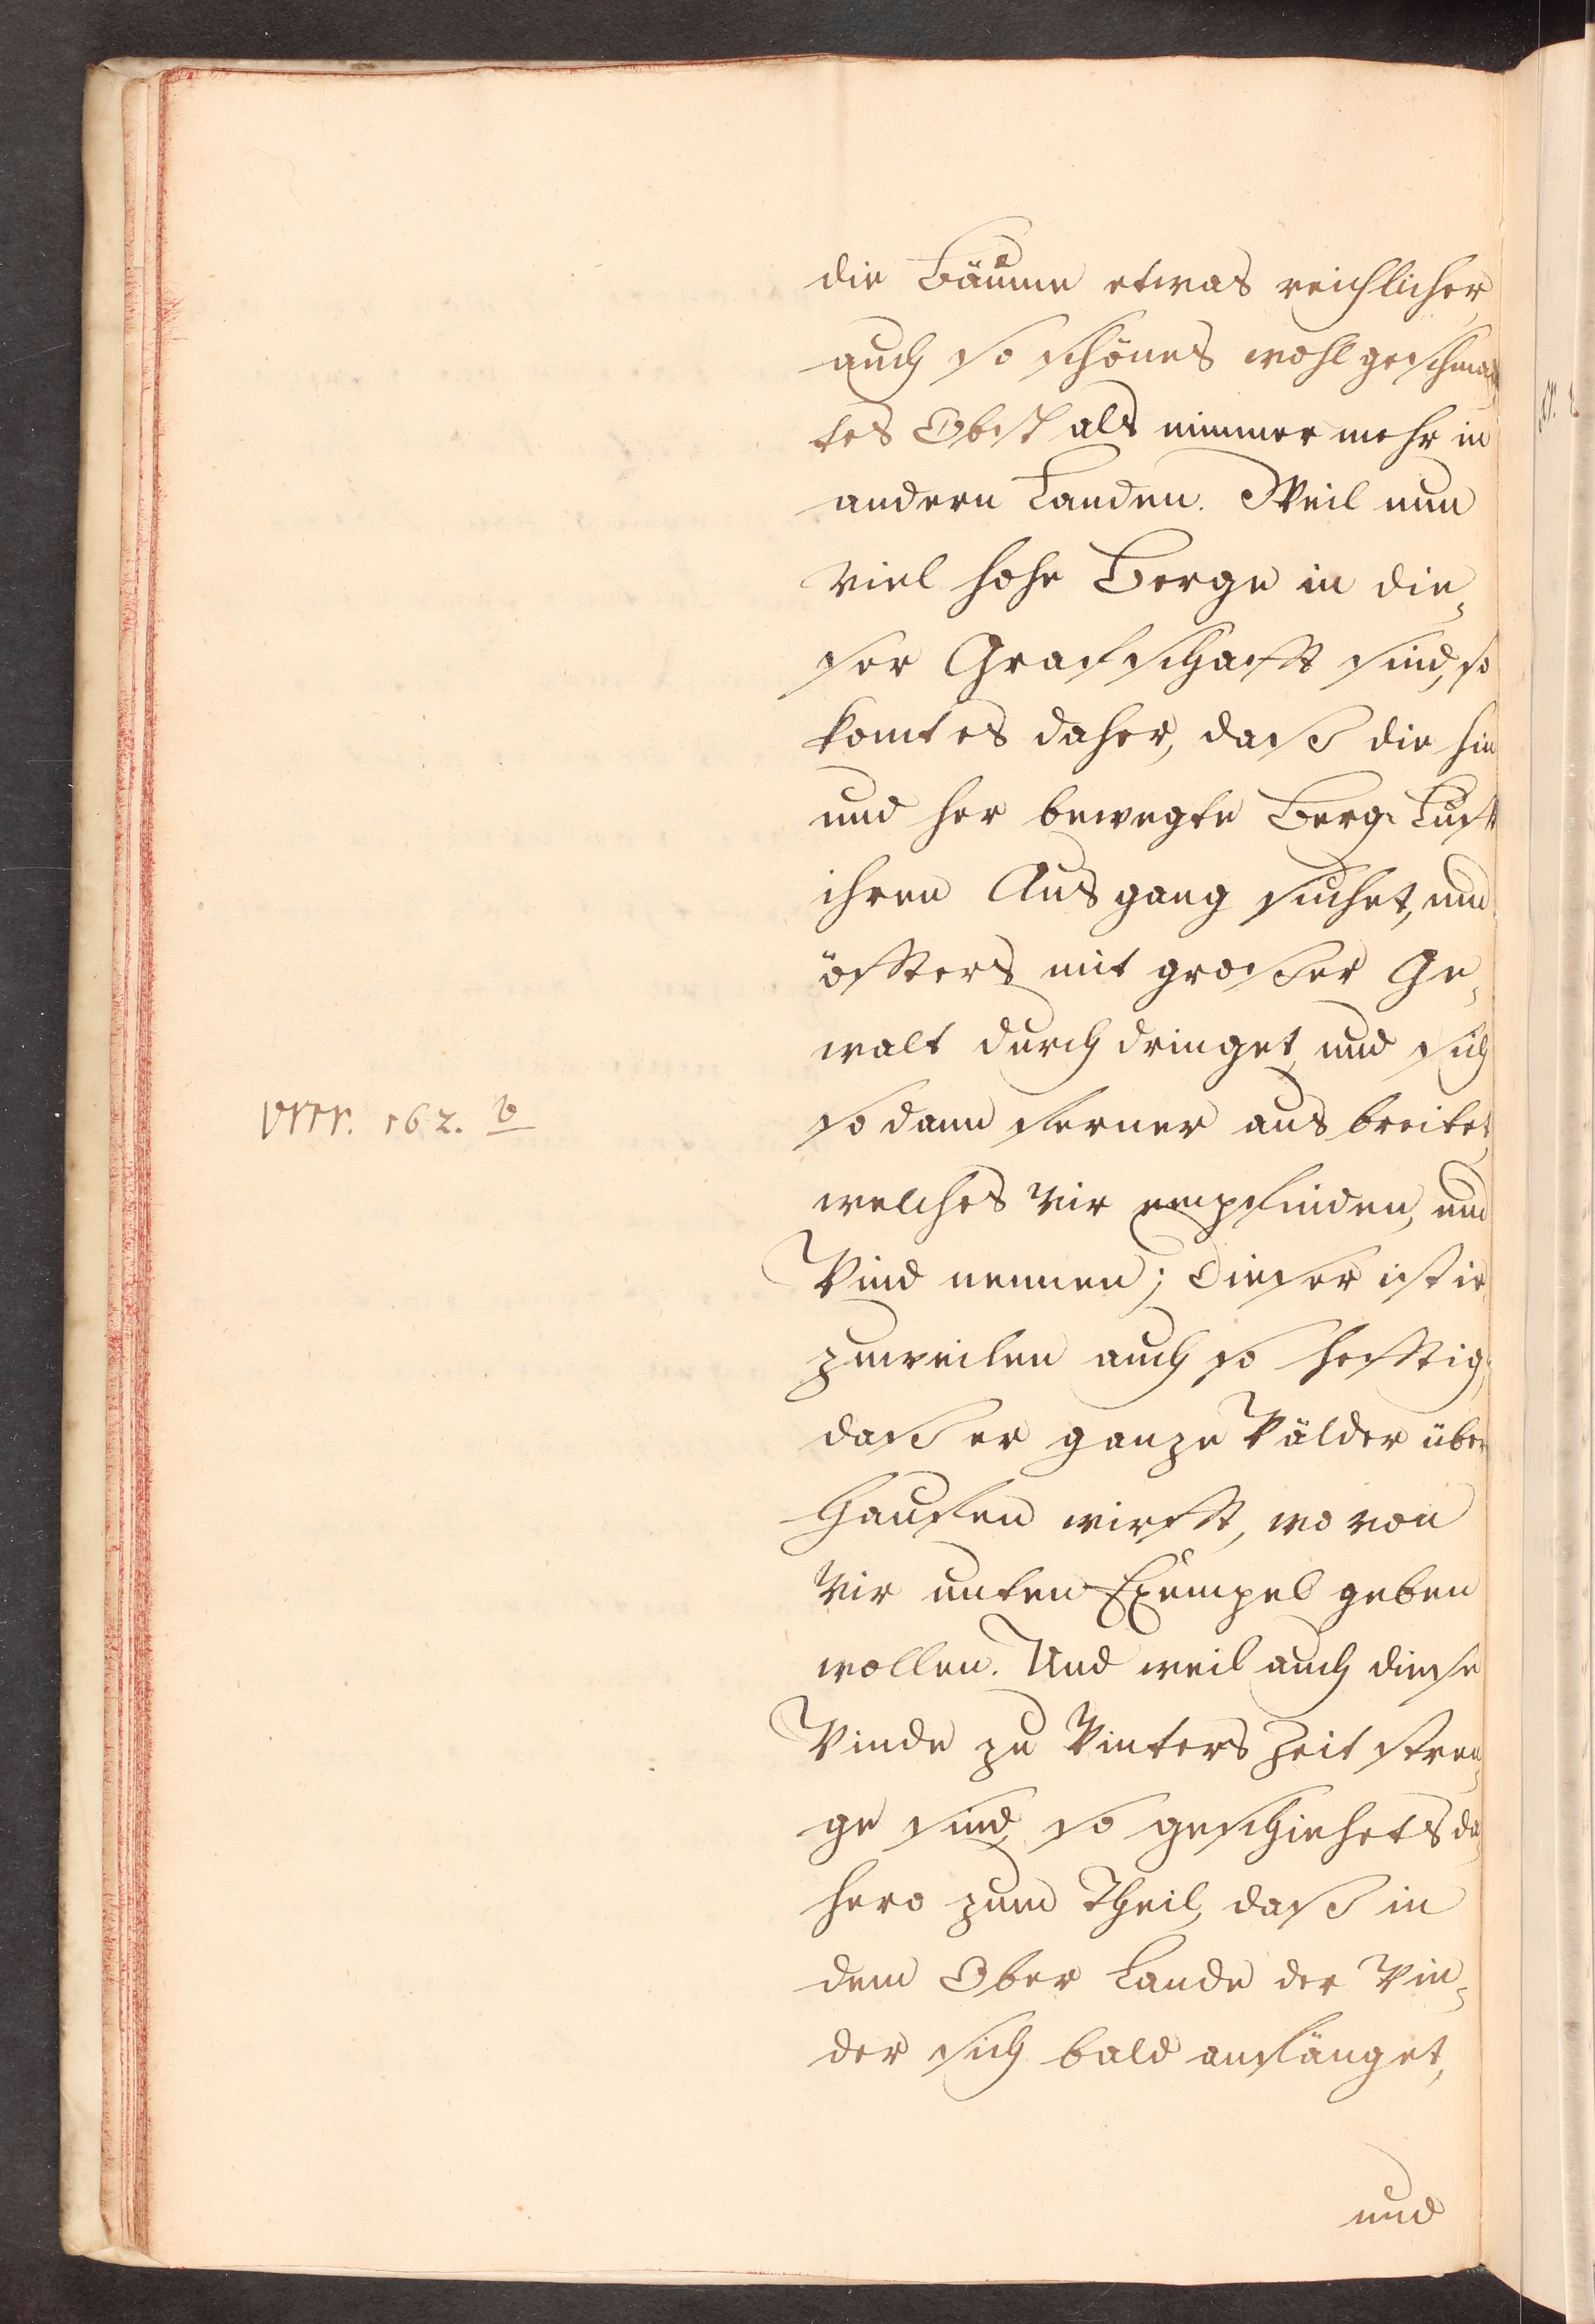 die Bäume etwas reichlicher,
auch so schönes wohl geschmack
tes Obst als nimmer mehr in
andern Landen. Weil nun
Viel hohe Berge in die¸
ser Graffschafft sind, so
komt es daher, daß die hin
und her bewegte Berg Lufft
ihren Ausgang suchet, und
öffters mit großer Ge¸
walt durch dringet, und sich
so dann ferner aus breitet,
162. b
welches Wir empfinden, und
Wind nennen; Dieser ist ie
zuweilen auch so hefftig,
daß er ganze Wälder über
Hauffen wirfft, wo von
Wir unten Exempel geben
wollen. Und weil auch diese
Winde zu Winters Zeit stren¸
ge sind, so geschiehets da
hero zum Theil, daß in
dem Ober Lande der Win¸
der sich bald anfänget,
und